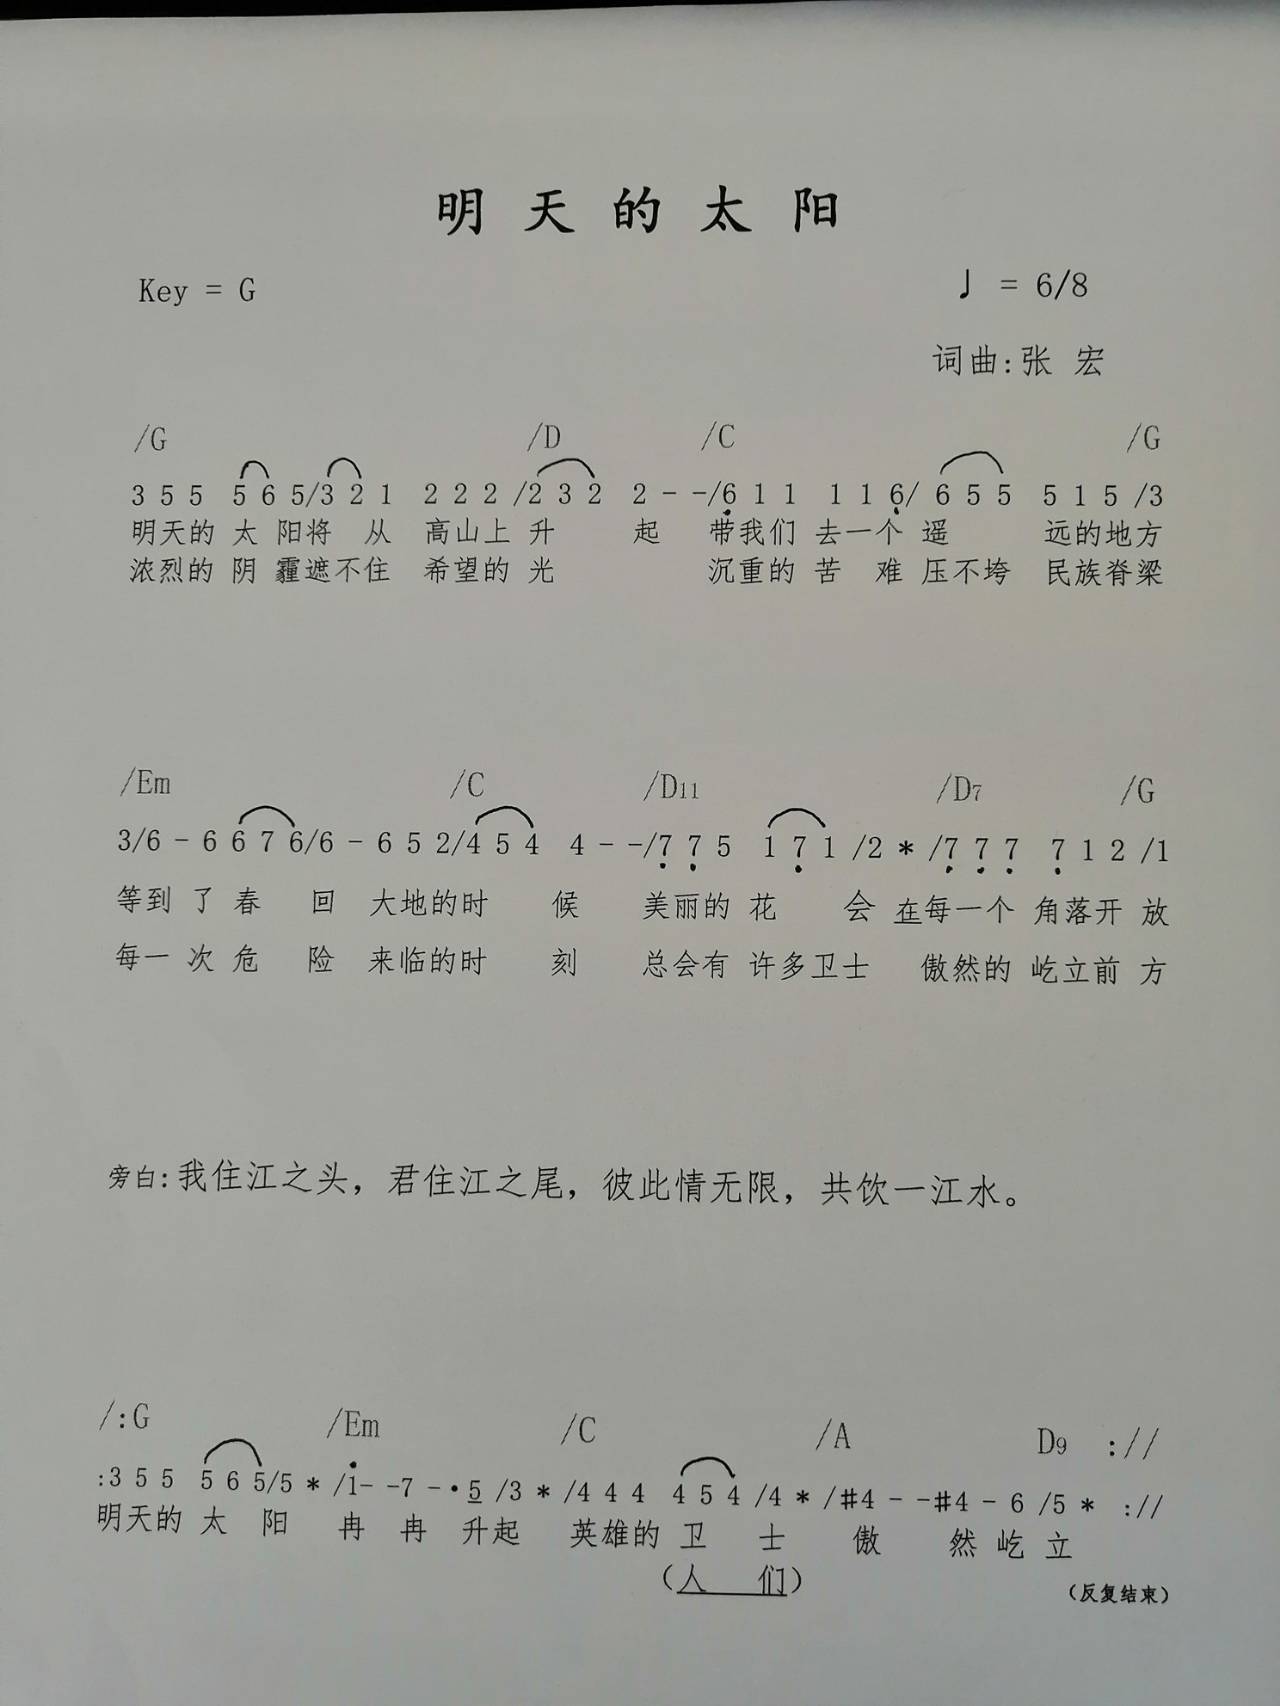 明天的太阳
Key = G
♩ = 6/8
词曲:张 宏
/G /D /C /G
3 5 5 5 6 5/3 2 1 2 2 2 /2 3 2 2 - -/6̣ 1 1 1 1 6̣/ 6 5 5 5 1 5 /3
明天的 太 阳将 从 高山上 升 起 带我们 去一个 遥 远的地方
浓烈的 阴 霾遮不住 希望的 光 沉重的 苦 难 压不垮 民族脊梁
/Em /C /D11 /D7 /G
3/6 - 6 6 7 6/6 - 6 5 2/4 5 4 4 - -/7̣ 7̣ 5 1 7̣ 1 /2 * /7̣ 7̣ 7̣ 7̣ 1 2 /1
等到 了 春 回 大地的时 候 美丽的 花 会 在每一个 角落开 放
每一 次 危 险 来临的时 刻 总会有 许多卫士 傲然的 屹立前 方
旁白:我住江之头，君住江之尾，彼此情无限，共饮一江水。
/:G /Em /C /A D9 ://
:3 5 5 5 6 5/5 * /1̇- -7 -·5̲ /3 * /4 4 4 4 5 4 /4 * /#4 - -#4 - 6 /5 * ://
明天的 太 阳 冉 冉 升起 英雄的 卫 士 傲 然 屹 立
(人 们)
(反复结束)